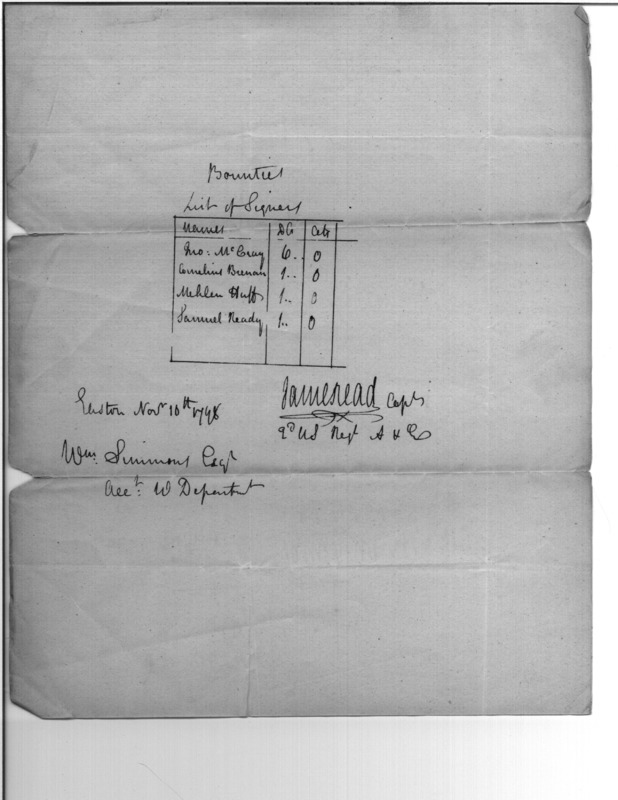 Bounties
List of Signers
Names Ds Cts
Jno: McCray 6.. 0
Cornelius Brenan 1.. 0
Mehlen Huff 1.. 0
Samuel Ready 1.. 0
Easton Novr 10th 1798
James Read Capt
2d US Regt A & E
Wm. Simmons Esqr
Acct. W Department